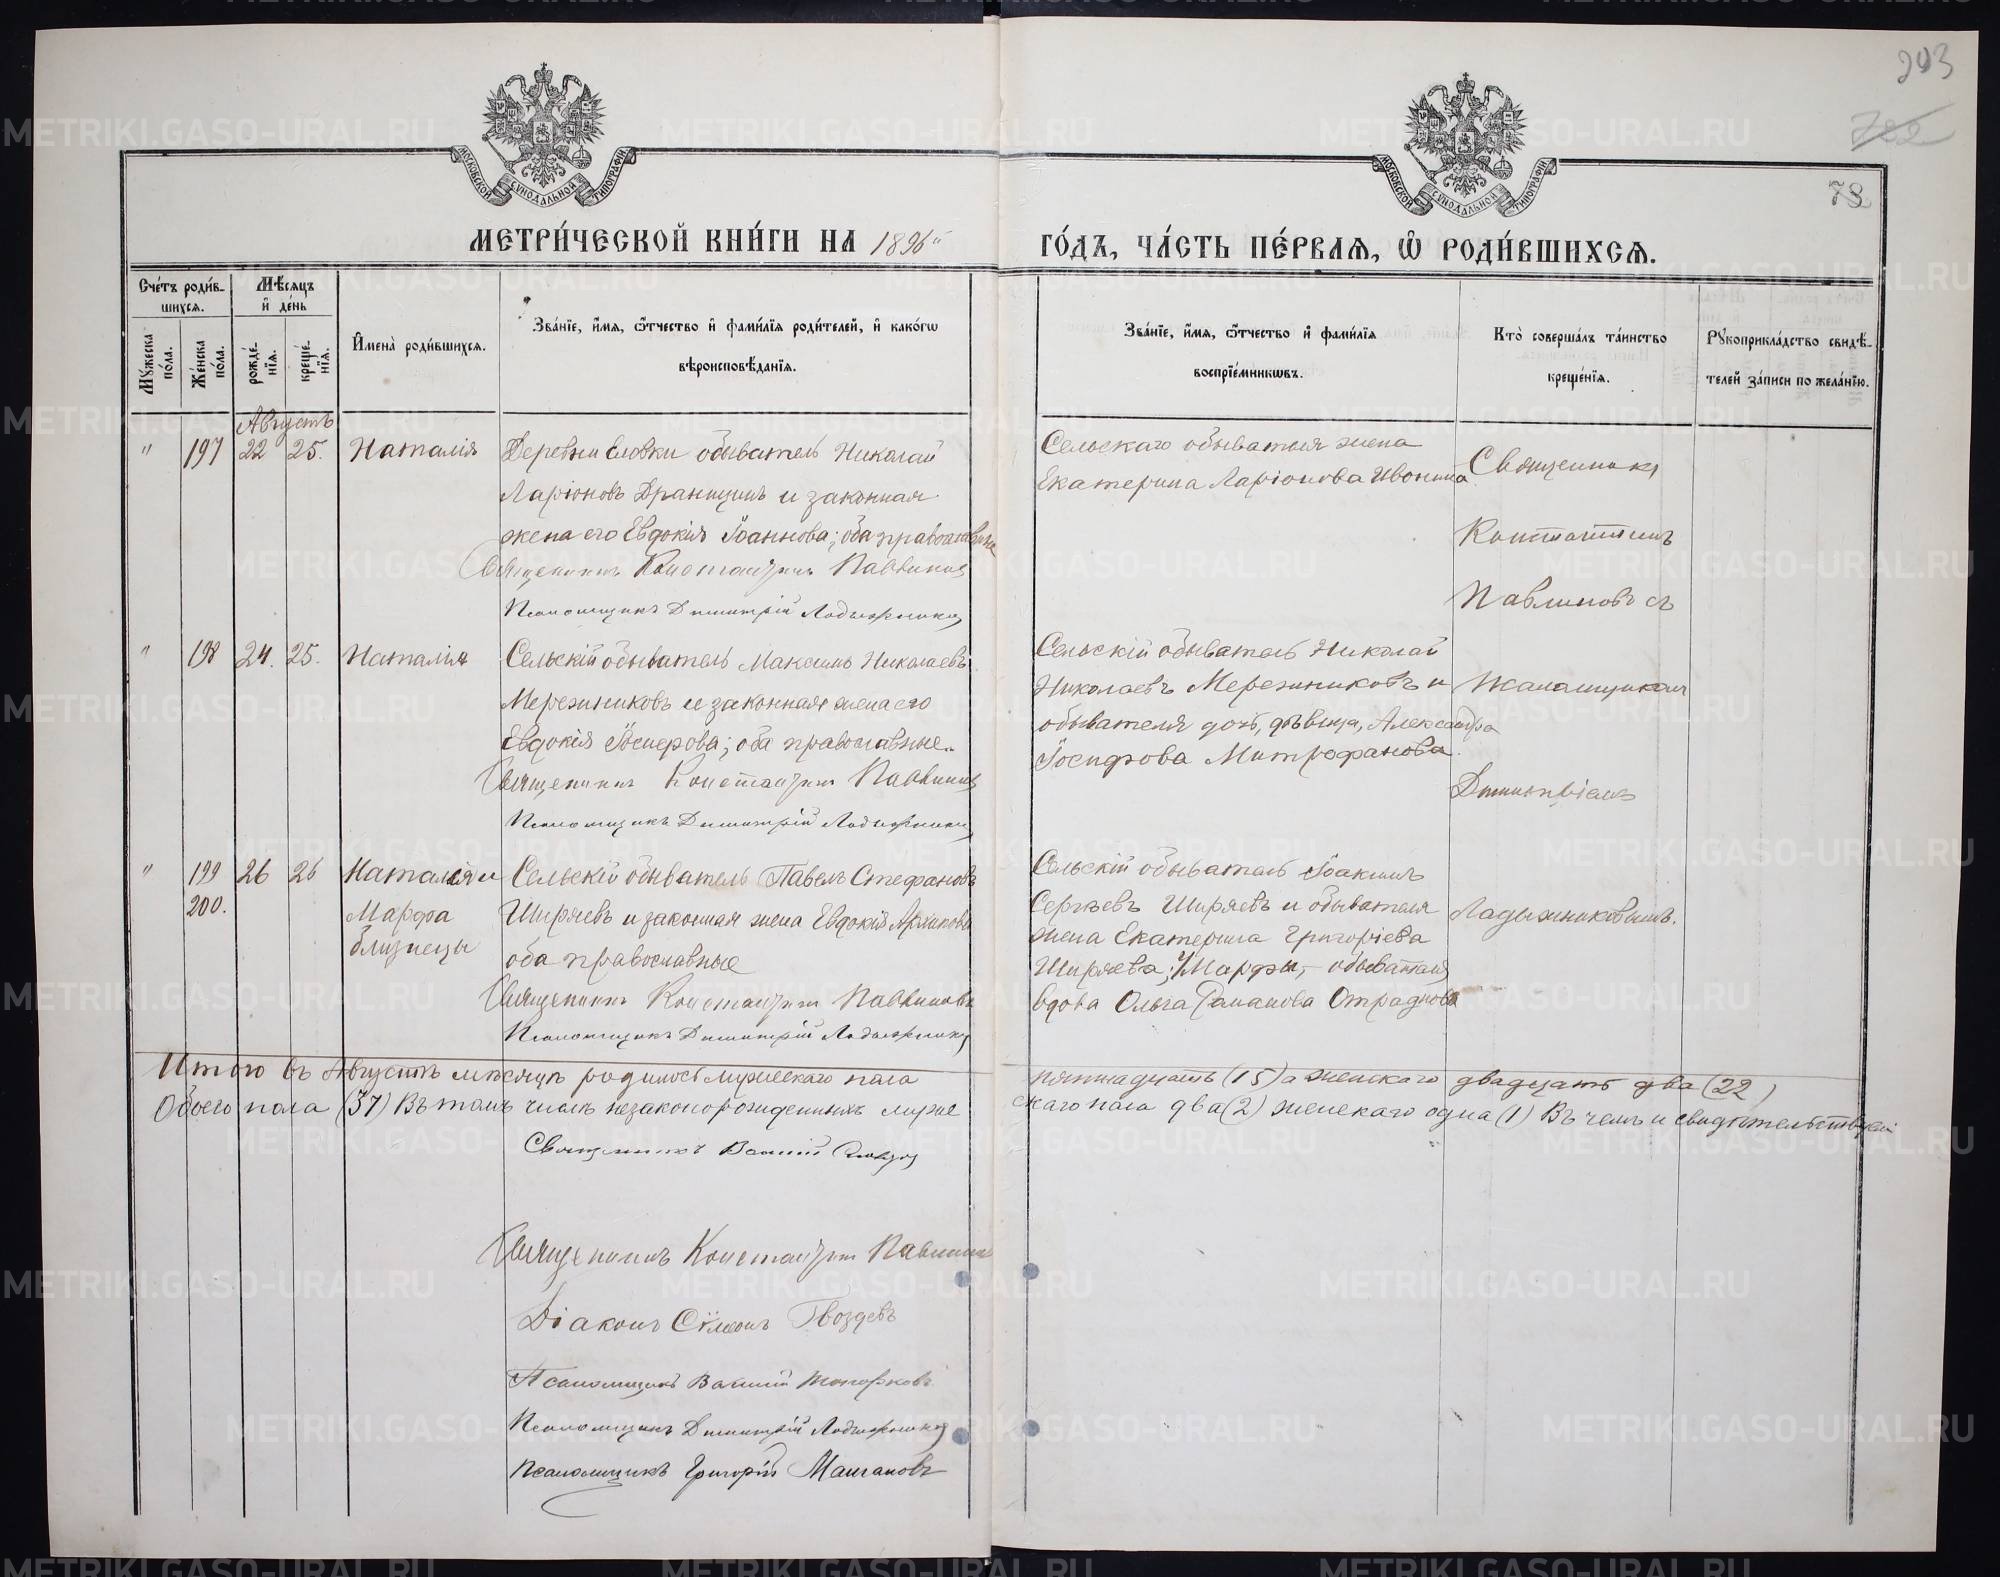 203
722
78
МОСКОВСКОЙ СѴНОДАЛЬНОЙ ТИПОГРАФІИ
МОСКОВСКОЙ СѴНОДАЛЬНОЙ ТИПОГРАФІИ
МЕТРИ́ЧЕСКОЙ КНИ́ГИ НА 1896й
ГО́ДЪ, ЧА́СТЬ ПЕ́РВАЯ, Ѡ РОДИ́ВШИХСЯ.
Сче́тъ роди́в-
шихся.
Мꙋ́жеска по́ла.
Же́нска по́ла.
Мѣ́сяцъ и҆ де́нь
рожде́-нїя.
креще́-нїя.
И҆мена̀ роди́вшихся.
Зва́нїе, и҆́мя, ѻ҆́тчество и҆ фами́лїя роди́телей, и҆ како́гѡ
вѣроисповѣ́данїя.
Зва́нїе, и҆́мя, ѻ҆́тчество и҆ фами́лїя
воспрїе́мникѡвъ.
Кто̀ соверша́лъ та́инство
креще́нїя.
Рꙋкоприкла́дство свидѣ́-
телей за́писи по жела́нїю.
Августъ
" 197 22 25. Наталія
Деревни Еловки обыватель Николай
Ларіоновъ Драницинъ и законная
жена его Евдокія Іоаннова; оба православные
Священникъ Константинъ Павлиновъ
Псаломщикъ Димитрій Ладыжников
Сельскаго обывателя жена
Екатерина Ларіонова Ивонина
Священникъ
Константинъ
Павлиновъ съ
" 198 24. 25. Наталія
Сельскій обыватель Максимъ Николаевъ
Мережниковъ и законная жена его
Евдокія Іосифова; оба православные.
Священникъ Константинъ Павлиновъ
Псаломщикъ Димитрій Ладыжников
Сельскій обыватель Николай
Николаевъ Мережниковъ и
обывателя дочь, дѣвица, Александра
Іосифова Митрофанова.
Псаломщикомъ
Димитріемъ
" 199 26 26 Наталія и
200. Марфа
близнецы
Сельскій обыватель Павелъ Стефановъ
Ширяевъ и законная жена Евдокія Архипова
оба православные
Священникъ Константинъ Павлиновъ
Псаломщикъ Димитрій Ладыжников
Сельскій обыватель Іоакимъ
Сергѣевъ Ширяевъ и обывателя
жена Екатерина Григоріева
Ширяева; У Марфы, – обывателя
вдова Ольга Романова Отраднова
Ладыжниковымъ.
Итого въ Августѣ мѣсяцѣ родилось мужескаго пола
пятнадцать (15) а женскаго двадцать два (22)
Обоего пола (37) Въ томъ числѣ незаконорожденныхъ муже
скаго пола два (2) женскаго одна (1) Въ чемъ и свидѣтельствуемъ
Священникъ Василій
Священникъ Константинъ Павлиновъ
Діаконъ Сѵмеонъ Гвоздевъ
Псаломщикъ Василій Топорковъ
Псаломщикъ Димитрій Ладыжников
Псаломщикъ Григорій Мангановъ
METRIKI.GASO-URAL.RU